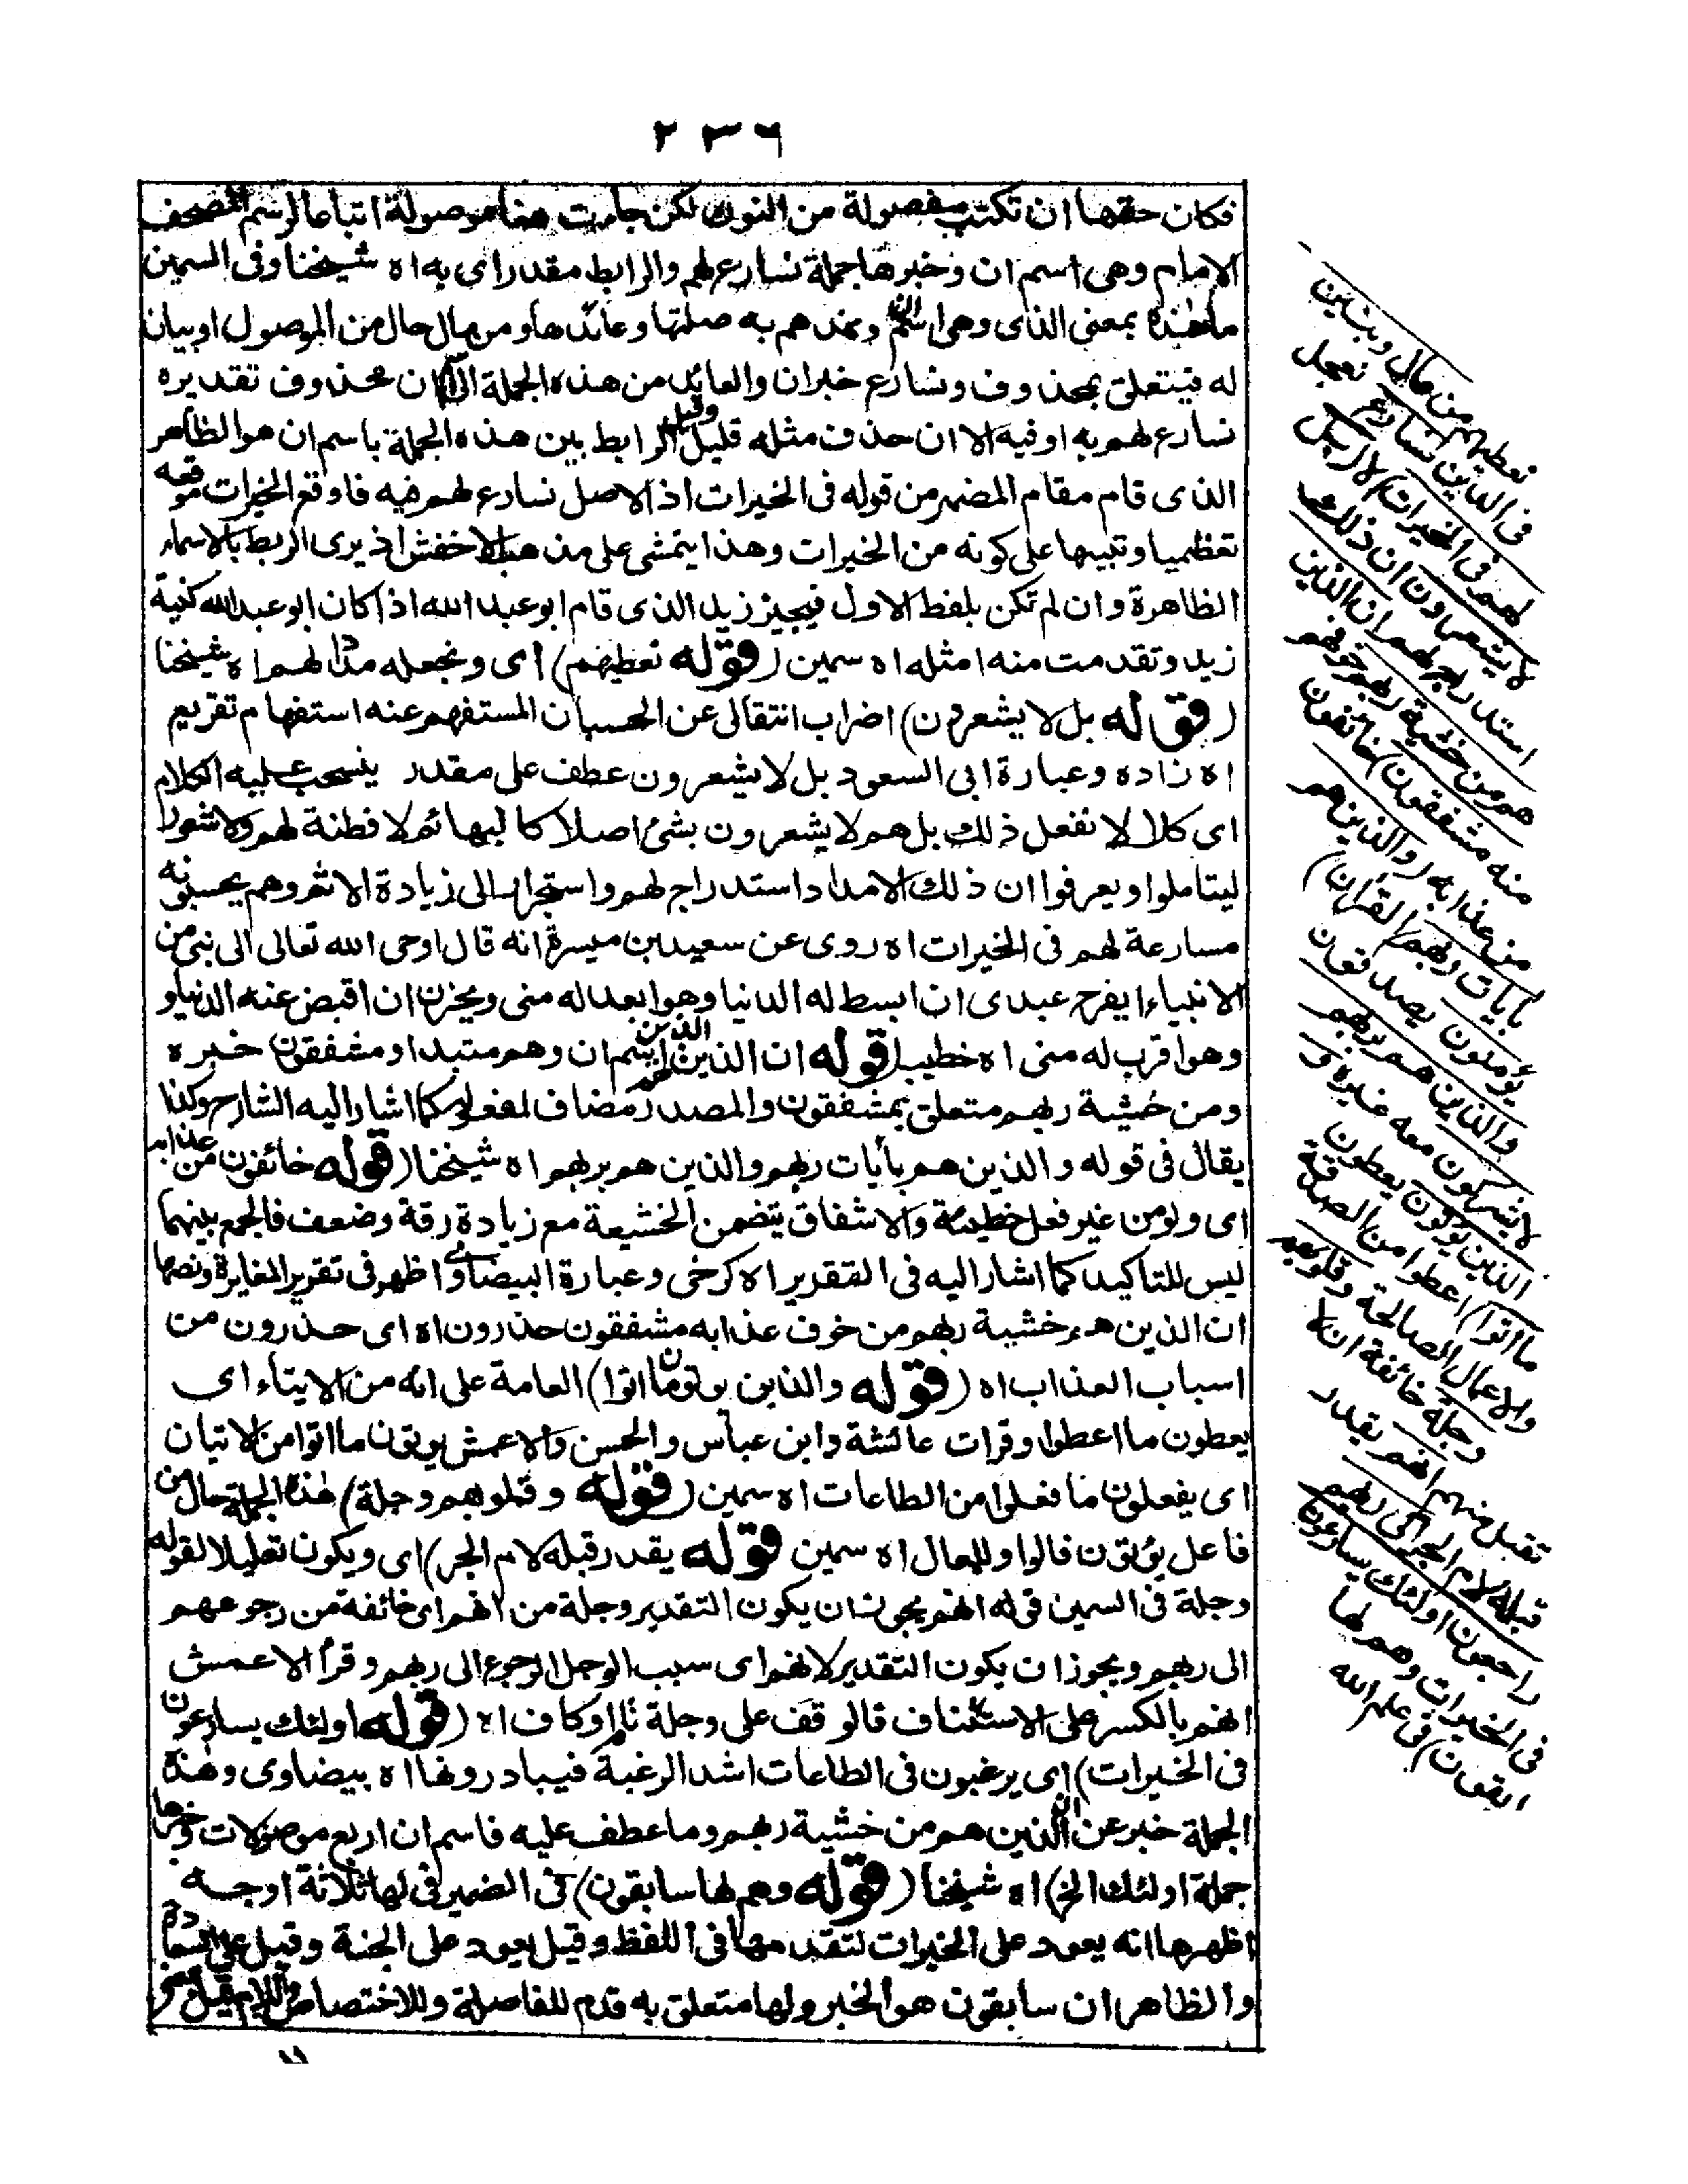 ٢٣٦
فكان حقها ان تكتب مفصولة من النون لكن جاءت هنا موصولة اتباعا لرسم المصحف
الامام وهى اسم ان وخبرها جملة نسارع لهم والرابط مقدر اى به اه شيخنا وفى السمين
ما هذه بمعنى الذى وهى اسم ان ونمدهم به صلتها وعائدها ومن مال حال من الموصول او بيان
له فيتعلق بمحذوف ونسارع خبران والعائد من هذه الجملة الى اسم ان محذوف تقديره
نسارع لهم به او فيه الا ان حذف مثله قليل وقيل الرابط بين هذه الجملة باسم ان هو الظاهر
الذى قام مقام المضمر من قوله فى الخيرات اذ الاصل نسارع لهم فيه فاوقع الخيرات موقعه
تعظيما وتنبيها على كونه من الخيرات وهذا يتمشى على مذهب الاخفش اذ يرى الربط بالاسماء
الظاهرة وان لم تكن بلفظ الاول فيجيز زيد الذى قام ابو عبد الله اذا كان ابو عبد الله كنية
زيد وتقدمت منه امثله اه سمين (قوله نعطيهم) اى ونجعله مددا لهم اه شيخنا
(قوله بل لا يشعرون) اضراب انتقالى عن الحسبان المستفهم عنه استفهام تقريع
اه زاده وعبارة ابى السعود بل لا يشعرون عطف على مقدر ينسحب عليه الكلام
اى كلا لا نفعل ذلك بل هم لا يشعرون بشئ اصلا كالبهائم لا فطنة لهم ولا شعور
ليتاملوا ويعرفوا ان ذلك الامداد استدراج لهم واستجرار الى زيادة الاثم وهم يحسبونه
مسارعة لهم فى الخيرات اه روى عن سعيد بن ميسرة انه قال اوحى الله تعالى الى نبى من
الانبياء ايفرح عبدى ان ابسط له الدنيا وهو ابعد له منى ويحزن ان اقبض عنه الدنيا و
وهو اقرب له منى اه خطيب (قوله ان الذين) الذين اسم ان وهم مبتدا ومشفقون خبره
ومن خشية ربهم متعلق بمشفقون والمصدر مضاف لمفعوله كما اشار اليه الشارح وكذا
يقال فى قوله والذين هم بأيات ربهم والذين هم بربهم اه شيخنا (قوله خائفون من عذابه
اى ولو من غير فعل خطيئة والاشفاق يتضمن الخشية مع زيادة رقة وضعف فالجمع بينهما
ليس للتاكيد كما اشار اليه فى التقدير اه كرخى وعبارة البيضاوى اظهر فى تقرير المغايرة ونصها
ان الذين هم من خشية ربهم من خوف عذابه مشفقون حذرون اه اى حذرون من
اسباب العذاب اه (قوله والذين يوتون ما اتوا) العامة على انه من الايتاء اى
يعطون ما اعطوا وقرات عائشة وابن عباس والحسن والاعمش يوتون ما اتوا من الاتيان
اى يفعلون ما فعلوا من الطاعات اه سمين (قوله وقلوبهم وجلة) هذه الجملة حال من
فاعل يؤتون فالواو للحال اه سمين قوله يقدر قبله لام الجر) اى ويكون تعليلا لقوله
وجلة فى السمين قوله انهم يجوز ان يكون التقدير وجلة من انهم اى خائفة من رجوعهم
الى ربهم ويجوز ان يكون التقدير لانهم اى سبب الوجل الرجوع الى ربهم وقرأ الاعمش
انهم بالكسر على الاستئناف فالوقف على وجلة تام او كاف اه (قوله اولئك يسارعون
فى الخيرات) اى يرغبون فى الطاعات اشد الرغبة فيبادرونها اه بيضاوى وهذه
الجملة خبر عن ان الذين هم من خشية ربهم وما عطف عليه فاسم ان اربع موصولات وخبرها
جملة اولئك الخ) اه شيخنا (قوله وهم لها سابقون) فى الضمير فى لها ثلاثة اوجه
اظهرها انه يعود على الخيرات لتقدمها فى اللفظ وقيل يعود على الجنة وقيل على السعادة
والظاهر ان سابقون هو الخبر ولها متعلق به قدم للفاصلة وللاختصاص
نعطيهم من مال وبنين
فى الدنيا نسارع نعجل
لهم فى الخيرات) لا بل
لا يشعرون ان ذلك
استدراج لهم ان الذين
هم من خشية ربهم خوفهم
منه مشفقون) خائفون
من عذابه (والذين هم
بأيات ربهم) القرآن)
يؤمنون يصدقون
والذين هم بربهم
لا يشركون معه غيره و
الذين يؤتون يعطون
ما اتوا) اعطوا من الصدقة
والاعمال الصالحة وقلوبهم
وجلة خائفة ان لا
تقبل منهم انهم يقدر
قبله لام الجر الى ربهم
راجعون اولئك يسارعون
فى الخيرات وهم لها
سابقون) فى علم الله